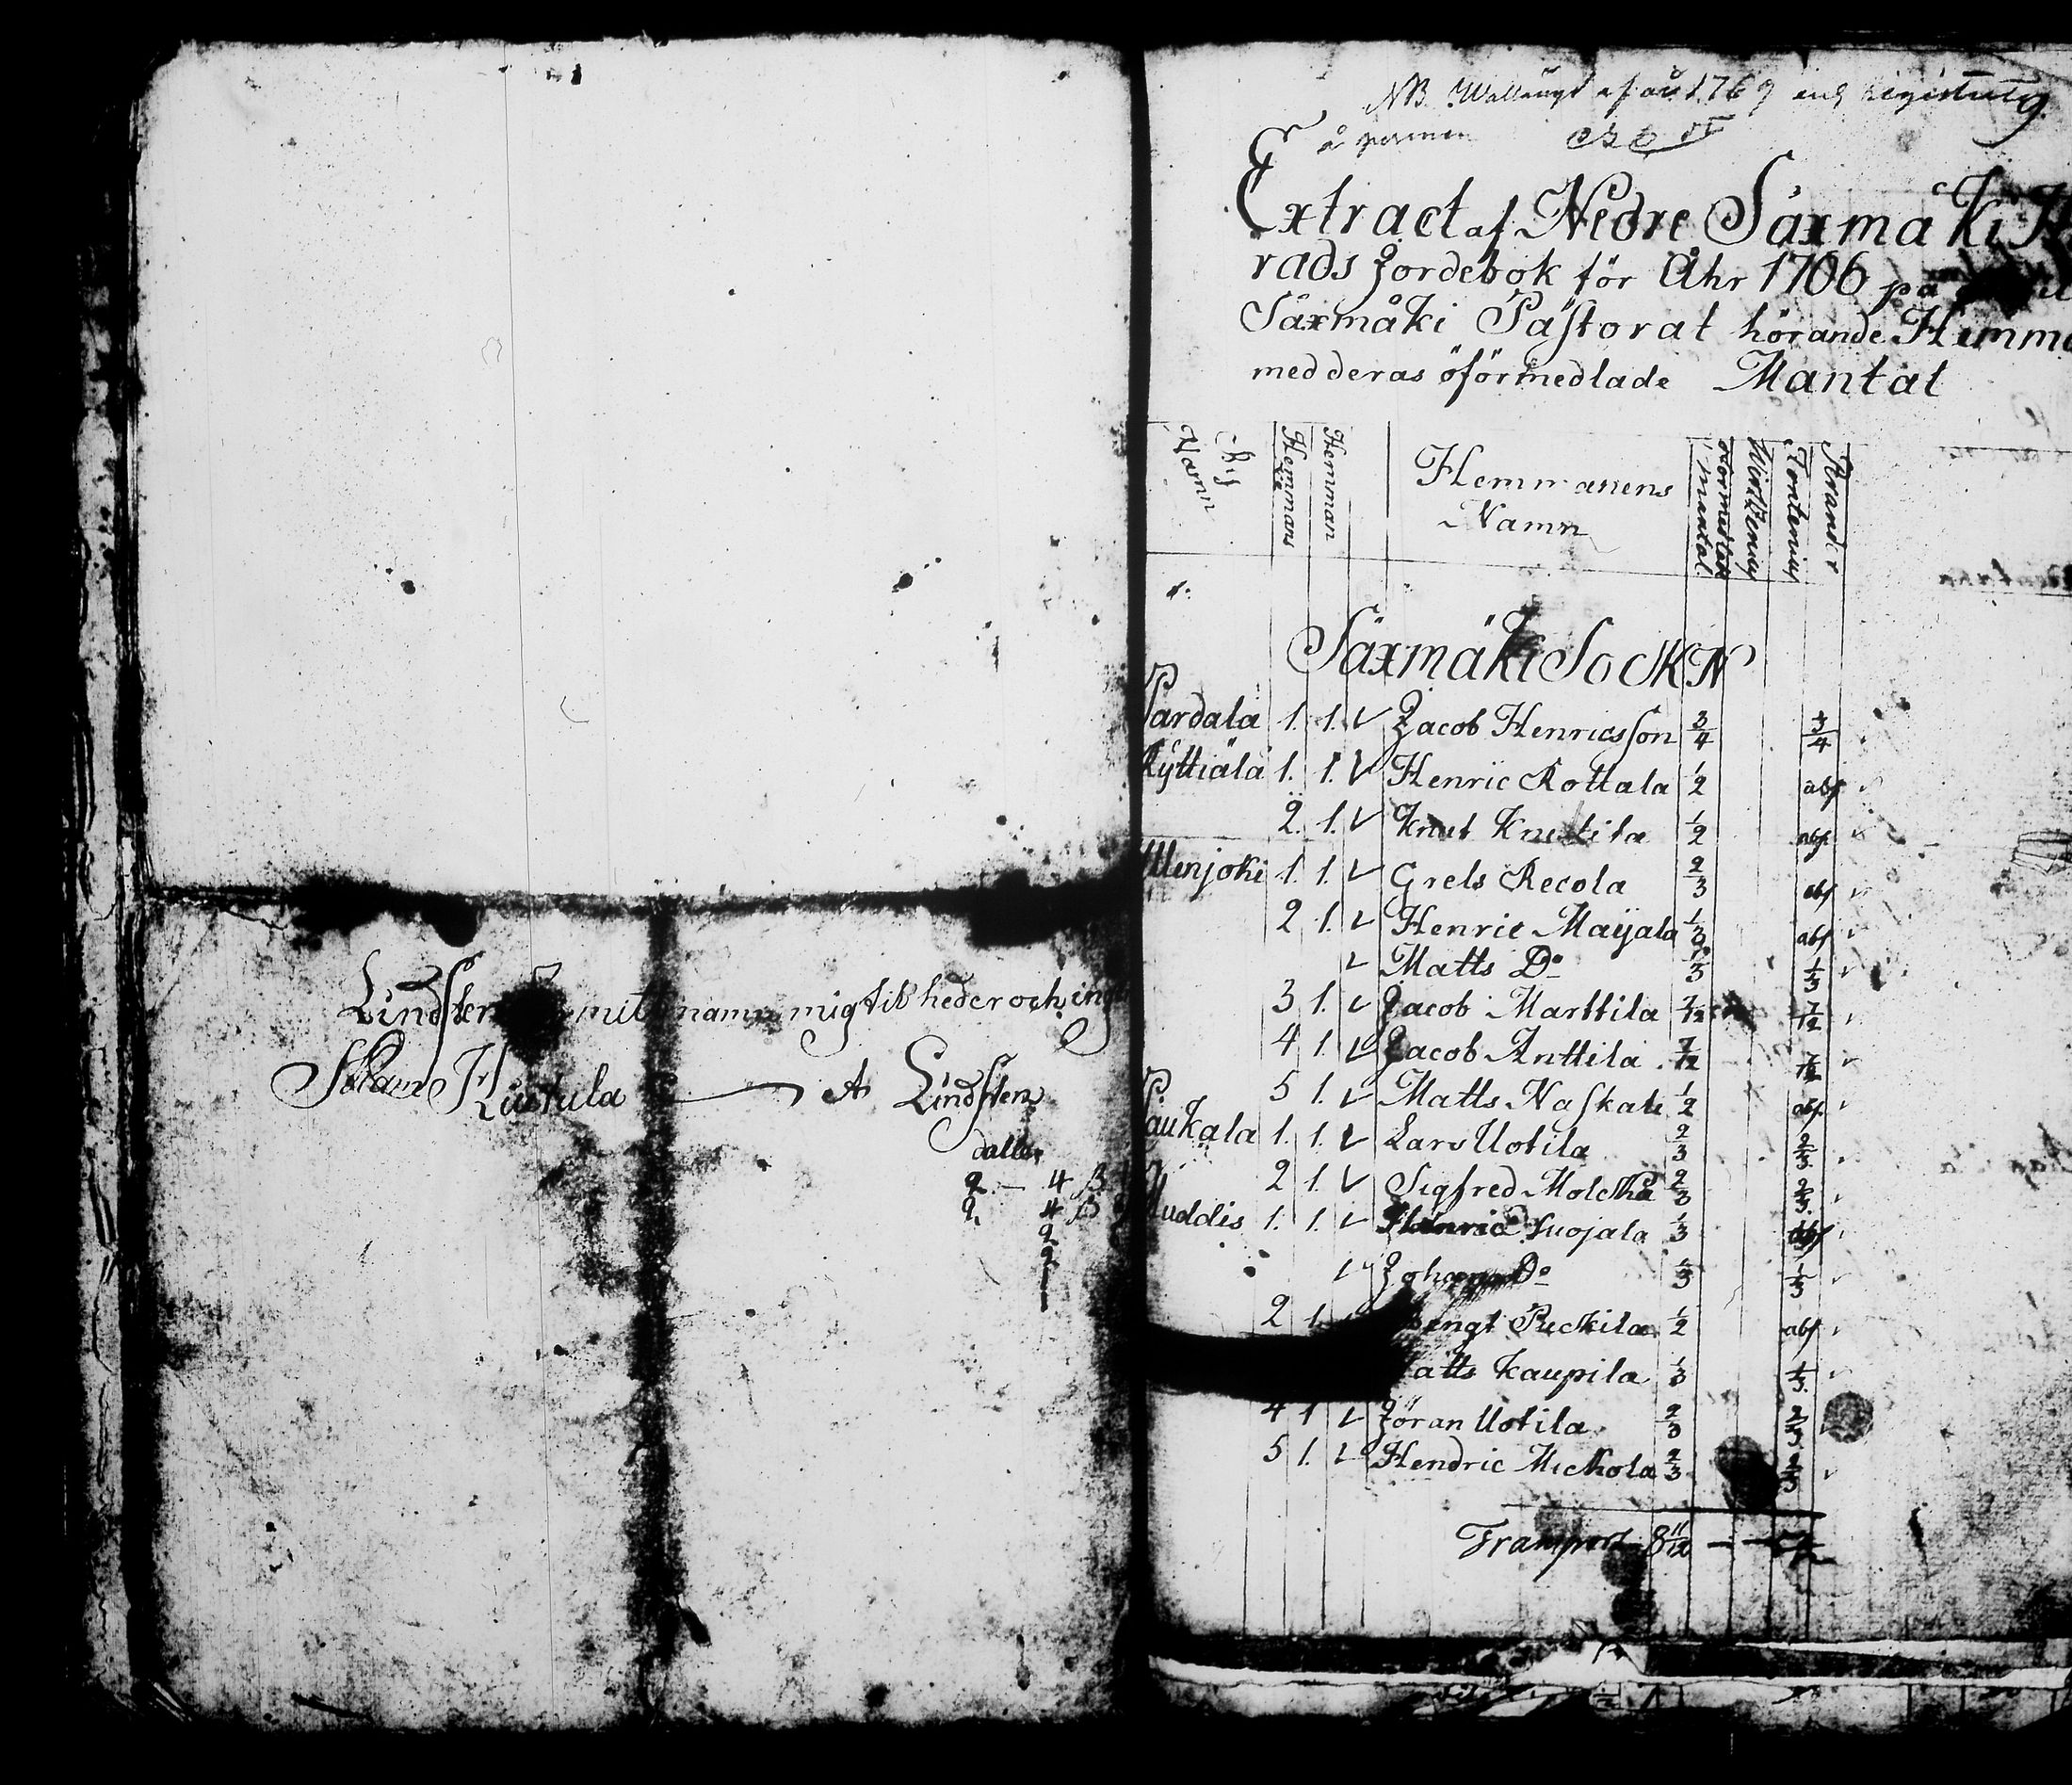 Lindsten mitt namn mig til heder och
Kustula A Lindsten
daller
2 — 4 ß
2. 4 ß
2
2
NB. af år 1769
å permen
9.
Extract af Nedre Säxmäki
rads Jordebok för Åhr 1706 på
Säxmäki Pastorat hörande Hemma
med deras oförmedlade Mantal
Bÿs Namn Hemmans No Hemman Hemmanens Namn mantal
1:
Säxmäki SockN
Pardala 1. 1. Jacob Henricsson 3/4 3/4
Kÿttiälä 1. 1. Henric Rottala 1/2 abs
2. 1. Knut Knutila 1/2 abs
Ullenjoki 1. 1. Grels Recola 2/3 abs
2 1. Henric Maÿala 1/3 abs
Matts Do 1/3 1/3
3 1. Jacob Marttila 7/12 7/12
4 1. Jacob Anttila 7/12 7/12
5 1. Matts Naskali 1/2 abs.
Paukala 1. 1. Lars Uotila 2/3 2/3
2 1. Sigfred 2/3 2/3
Huddis 1. 1. Henric Suojala 1/3 abs
Johan Do 1/3 1/3
2 1. Bengt 1/2 abs
atts Kaupila 1/3 1/3
4 1 Jöran Uotila 2/3 2/3
5 1. Hendric Mickola 2/3 2/3
Transport 8 11/12 —